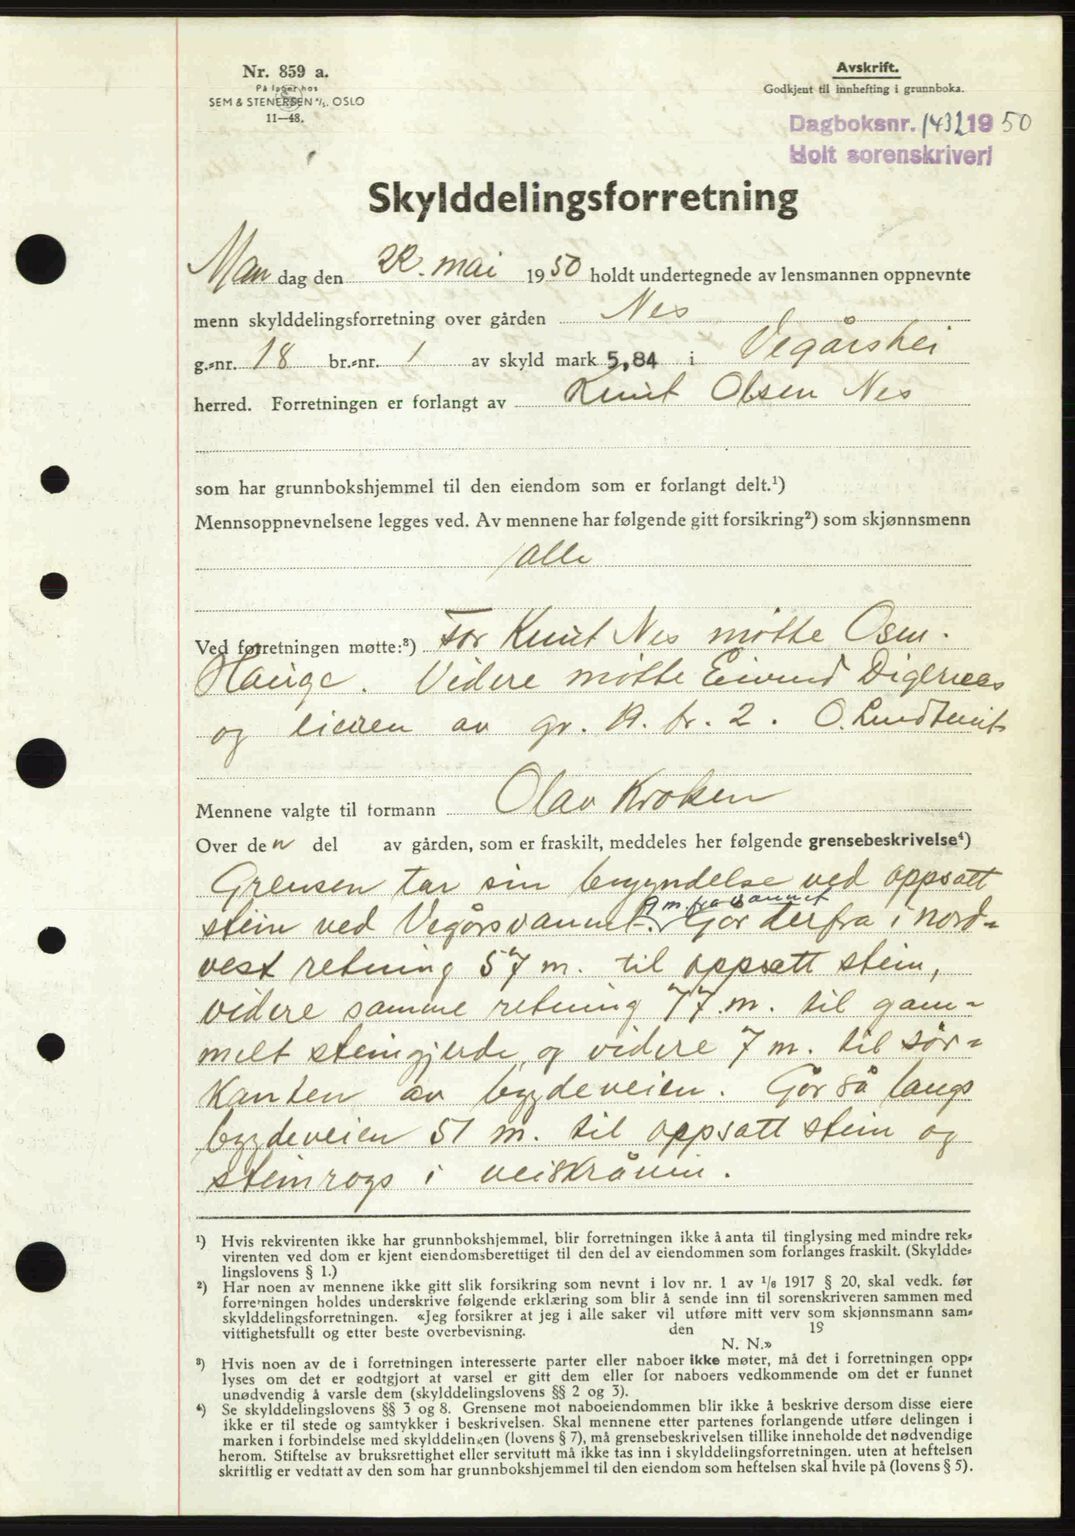 Nr. 859 a.
På lager hos
SEM & STENERSEN A/S. OSLO
11—48.
Avskrift.
Godkjent til innhefting i grunnboka.
Dagboksnr. 1432 19 50
Holt sorenskriveri
Skylddelingsforretning
Man dag den 22. mai 1950 holdt undertegnede av lensmannen oppnevnte
menn skylddelingsforretning over gården Nes
g.-nr. 18 br.-nr. 1 av skyld mark 5,84 i Vegårshei
herred. Forretningen er forlangt av Knut Olsen Nes
som har grunnbokshjemmel til den eiendom som er forlangt delt.¹)
Mennsoppnevnelsene legges ved. Av mennene har følgende gitt forsikring²) som skjønnsmenn
alle
Ved forretningen møtte:³) For Knut Nes møtte Osm.
Hauge. Videre møtte Eivind Digernes
og eieren av gr. br. 2. O.
Mennene valgte til formann Olav Kroken
Over den del av gården, som er fraskilt, meddeles her følgende grensebeskrivelse⁴)
Grensen tar sin begyndelse ved oppsatt
9 m. fra vannet
stein ved Vegårsvannet. Går derfra i nord-
vest retning 57 m. til oppsatt stein,
videre samme retning 77 m. til gam-
melt steingjerde, og videre 7 m. til sør-
kanten av bygdeveien. Går så langs
bygdeveien 51 m. til oppsatt stein og
steinrøys i veiskråning.
¹) Hvis rekvirenten ikke har grunnbokshjemmel, blir forretningen ikke å anta til tinglysing med mindre rek-
virenten ved dom er kjent eiendomsberettiget til den del av eiendommen som forlanges fraskilt. (Skyldde-
lingslovens § 1.)
²) Har noen av mennene ikke gitt slik forsikring som nevnt i lov nr. 1 av 1/6 1917 § 20, skal vedk. før
forretningen holdes underskrive følgende erklæring som blir å sende inn til sorenskriveren sammen med
skylddelingsforretningen. «Jeg forsikrer at jeg i alle saker vil utføre mitt verv som skjønnsmann sam-
vittighetsfullt og etter beste overbevisning. den 19
N. N.»
³) Hvis noen av de i forretningen interesserte parter eller naboer ikke møter, må det i forretningen opp-
lyses om det er godtgjort at varsel er gitt dem eller for naboers vedkommende om det er funnet
unødvendig å varsle dem (skylddelingslovens §§ 2 og 3).
⁴) Se skylddelingslovens §§ 3 og 8. Grensene mot naboeiendommen blir ikke å beskrive dersom disse eiere
ikke er til stede og samtykker i beskrivelsen. Skal mennene etter partenes forlangende utføre delingen i
marken i forbindelse med skylddelingen (lovens § 7), må grensebeskrivelsen tillike inneholde det nødvendige
herom. Stiftelse av bruksrettighet eller servitutt må ikke tas inn i skylddelingsforretningen, uten at heftelsen
skriftlig er vedtatt av den som har grunnbokshjemmel til den eiendom som heftelsen skal hvile på (lovens § 5).